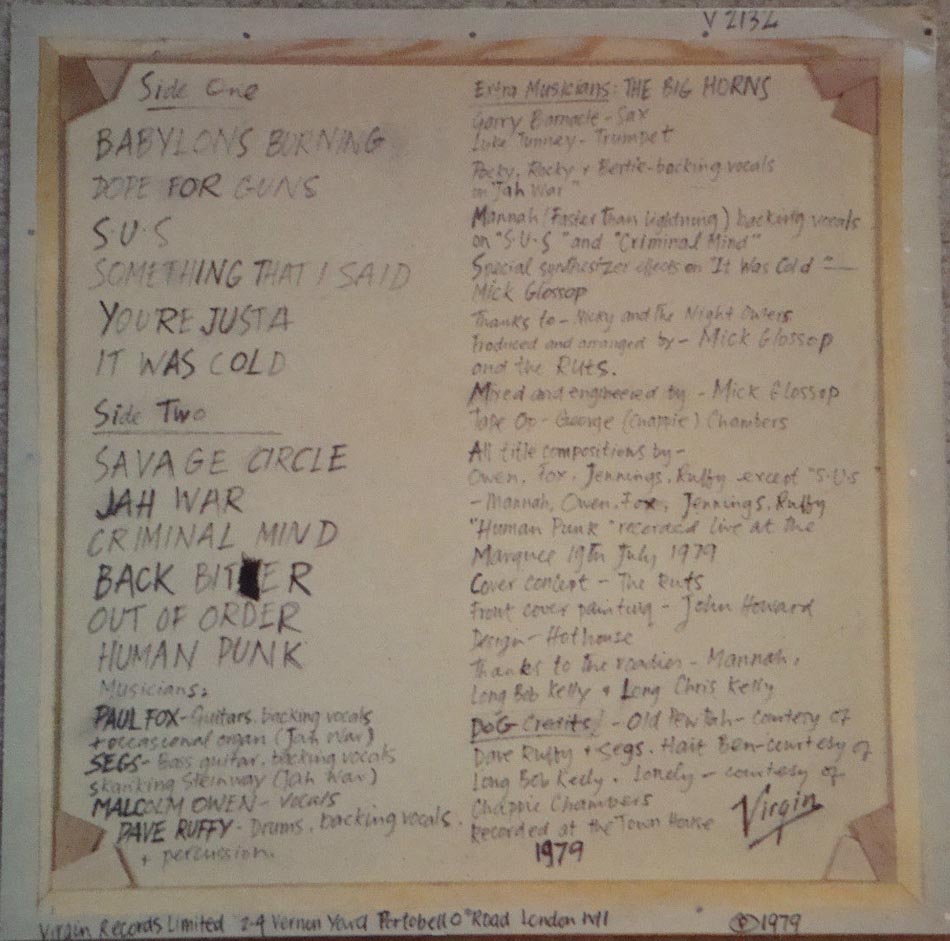 V 2132
Side One
BABYLONS BURNING
DOPE FOR GUNS
S·U·S
SOMETHING THAT I SAID
YOU'RE JUST A
IT WAS COLD
Side Two
SAVAGE CIRCLE
JAH WAR
CRIMINAL MIND
BACK BITER
OUT OF ORDER
HUMAN PUNK
Musicians:
PAUL FOX - Guitars, backing vocals
+ occasional organ (Jah War)
SEGS - Bass guitar, backing vocals
skanking Steinway (Jah War)
MALCOLM OWEN - vocals
DAVE RUFFY - Drums, backing vocals.
+ percussion.
Extra Musicians: THE BIG HORNS
Garry Barnacle - Sax
Luke Tunney - Trumpet
Pocky, Rocky + Bertie - backing vocals
on "Jah War"
Mannah (Faster than lightning) backing vocals
on "S·U·S" and "Criminal Mind"
Special synthesizer effects on "It Was Cold" -
Mick Glossop
Thanks to - Nicky and the Night Owlers
Produced and arranged by - Mick Glossop
and the Ruts.
Mixed and engineered by - Mick Glossop
Tape Op - George (Chappie) Chambers
All title compositions by -
Owen, Fox, Jennings, Ruffy except "S·U·S
- Mannah, Owen, Fox, Jennings, Ruffy
"Human Punk" recorded live at the
Marquee 19th July 1979
Cover concept - The Ruts
Front cover painting - John Howard
Design - Hothouse
Thanks to the roadies - Mannah,
Long Bob Kelly + Long Chris Kelly
DOG Credits! - Old Pew Tah - courtesy of
Dave Ruffy + Segs. Hait Ben - courtesy of
Long Bob Kelly. Lonely - courtesy of
Chappie Chambers
Recorded at the Town House
1979
Virgin
Virgin Records Limited 2-4 Vernon Yard Portobello Road London W11
Ⓟ©1979